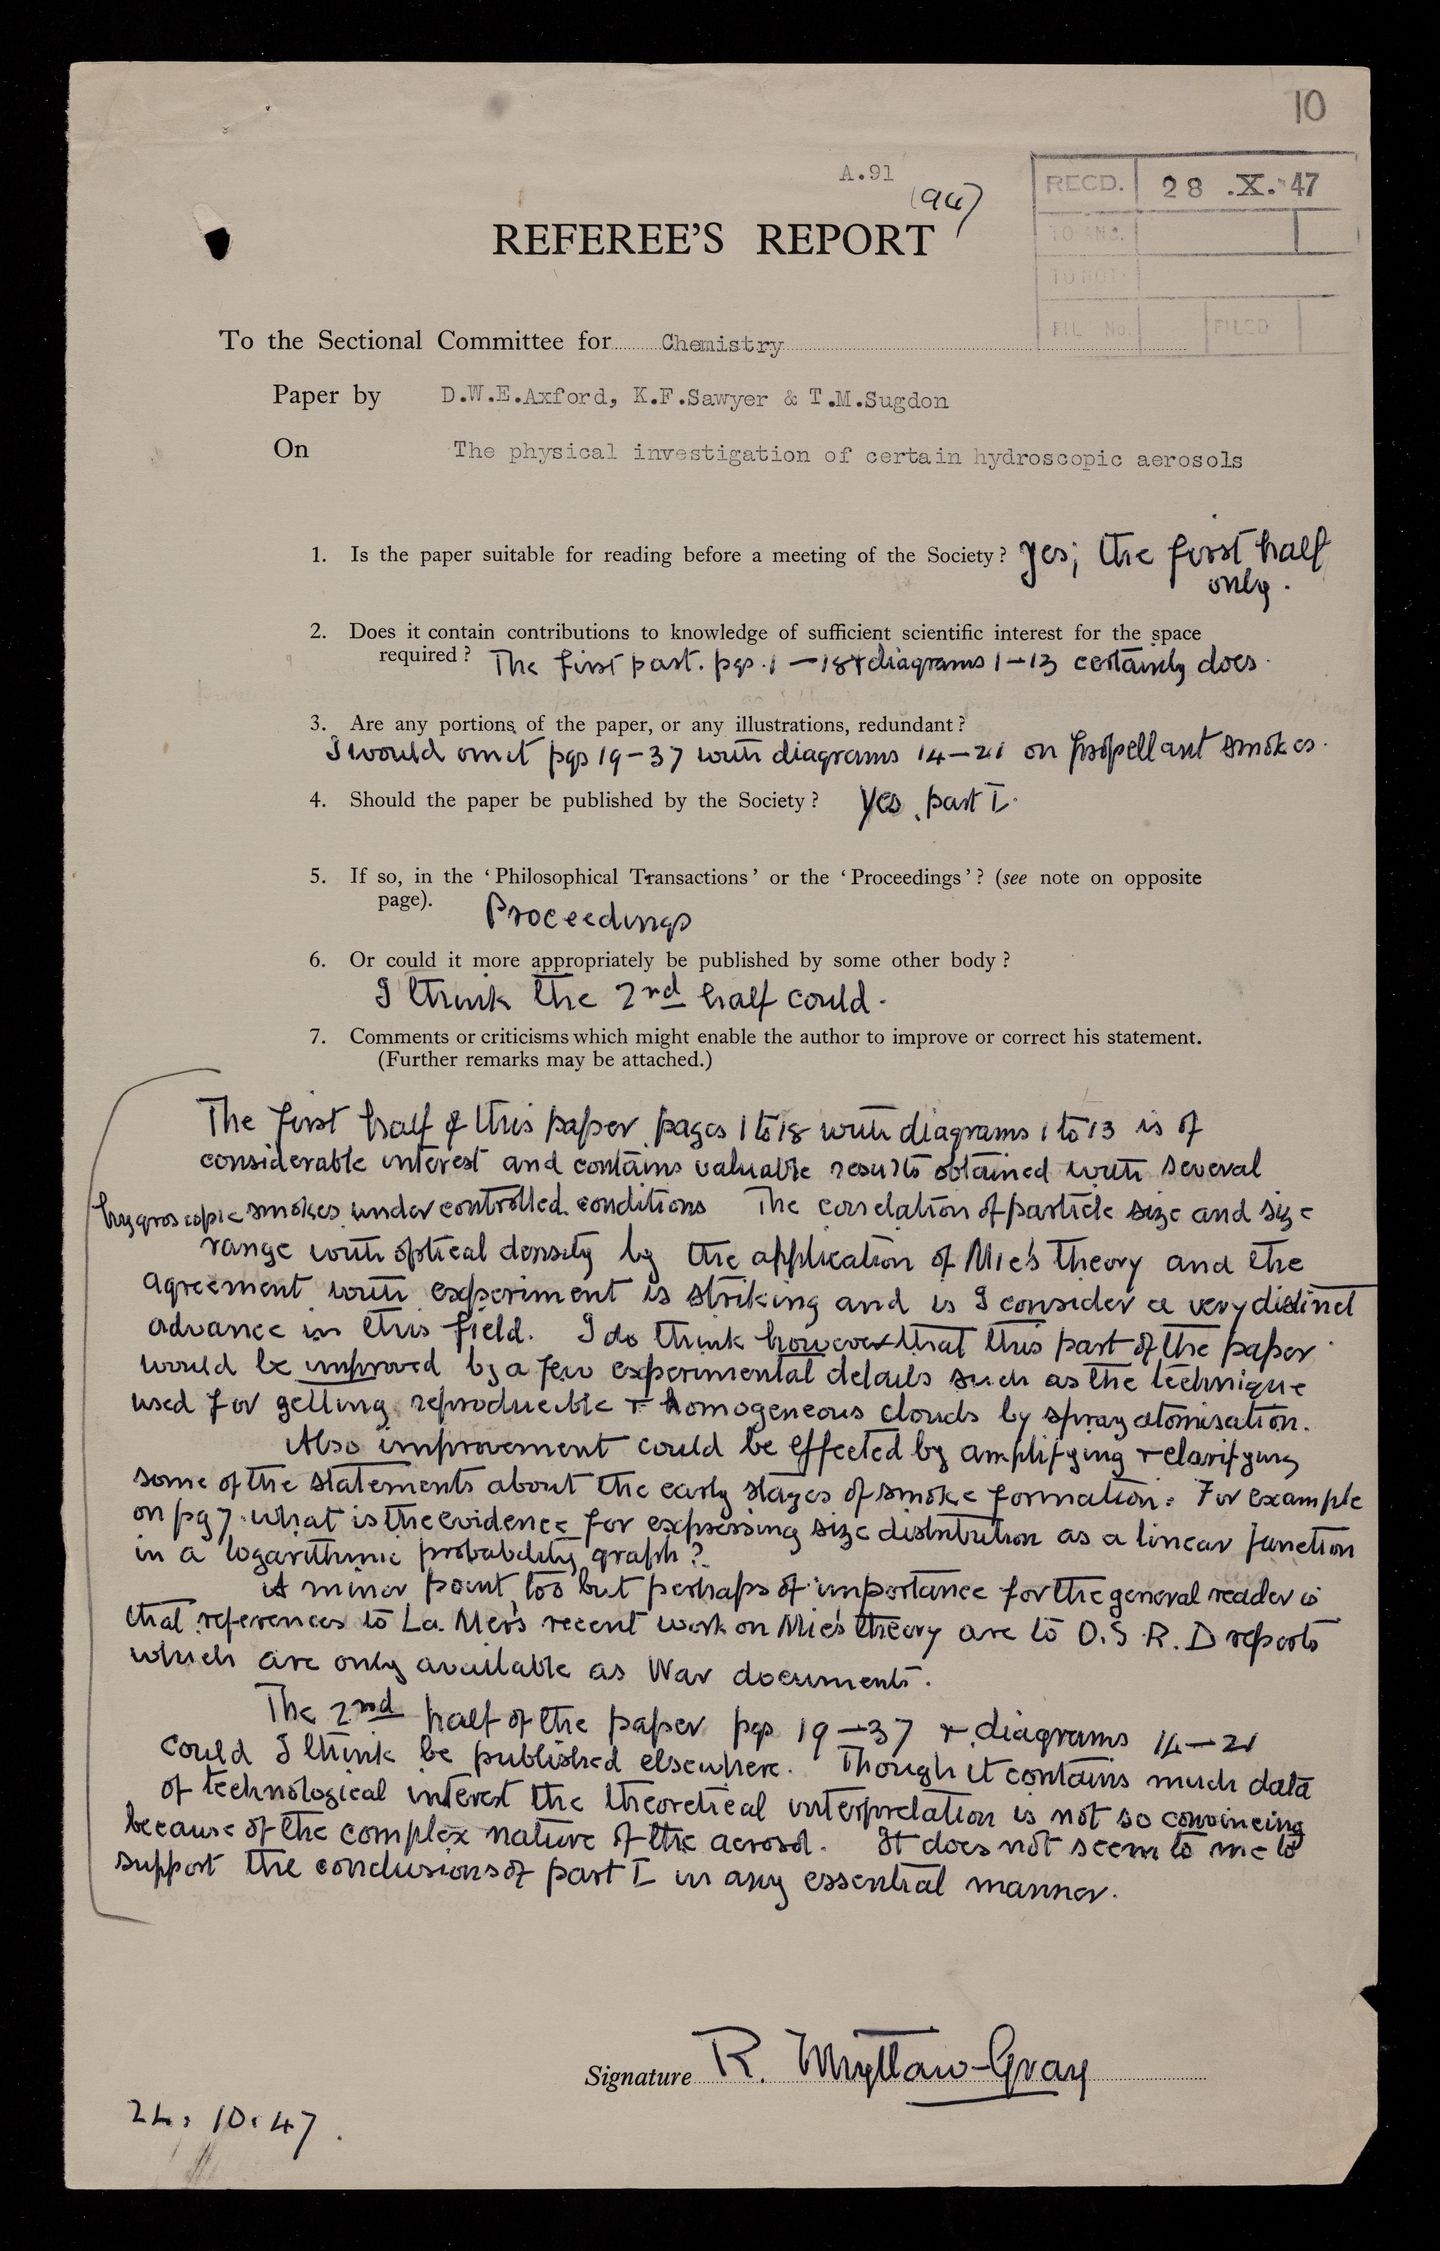 10
A.91
(94)
RECD. 28 .X. 47
TO ANS.
FIL No. FILED
REFEREE'S REPORT
To the Sectional Committee for Chemistry
Paper by D.W.E.Axford, K.F.Sawyer & T.M.Sugdon
On The physical investigation of certain hydroscopic aerosols
1. Is the paper suitable for reading before a meeting of the Society? Yes; the first half
only.
2. Does it contain contributions to knowledge of sufficient scientific interest for the space
required? The first part. pgs. 1 — 18 + diagrams 1 — 13 certainly does.
3. Are any portions of the paper, or any illustrations, redundant?
I would omit pgs 19 — 37 with diagrams 14 — 21 on propellant smokes.
4. Should the paper be published by the Society? Yes, part I.
5. If so, in the ‘Philosophical Transactions’ or the ‘Proceedings’? (see note on opposite
page). Proceedings
6. Or could it more appropriately be published by some other body?
I think the 2nd half could.
7. Comments or criticisms which might enable the author to improve or correct his statement.
(Further remarks may be attached.)
The first half of this paper pages 1 to 18 with diagrams 1 to 13 is of
considerable interest and contains valuable results obtained with several
hygroscopic smokes under controlled conditions The correlation of particle size and size
range with optical density by the application of Mie's theory and the
agreement with experiment is striking and is I consider a very distinct
advance in this field. I do think however that this part of the paper
would be improved by a few experimental details such as the technique
used for getting reproducible + homogeneous clouds by spray atomisation.
Also improvement could be effected by amplifying + clarifying
some of the statements about the early stages of smoke formation. For example
on pg 7. what is the evidence for expressing size distribution as a linear function
in a logarithmic probability graph?
A minor point, too but perhaps of importance for the general reader is
that references to La Mer's recent work on Mie's theory are to O.S.R.D reports
which are only available as War documents.
The 2nd half of the paper pgs 19 — 37 + diagrams 14 — 21
could I think be published elsewhere. Though it contains much data
of technological interest the theoretical interpretation is not so convincing
because of the complex nature of the aerosol. It does not seem to me to
support the conclusions of part I in any essential manner.
Signature R. Whytlaw-Gray
24.10.47.